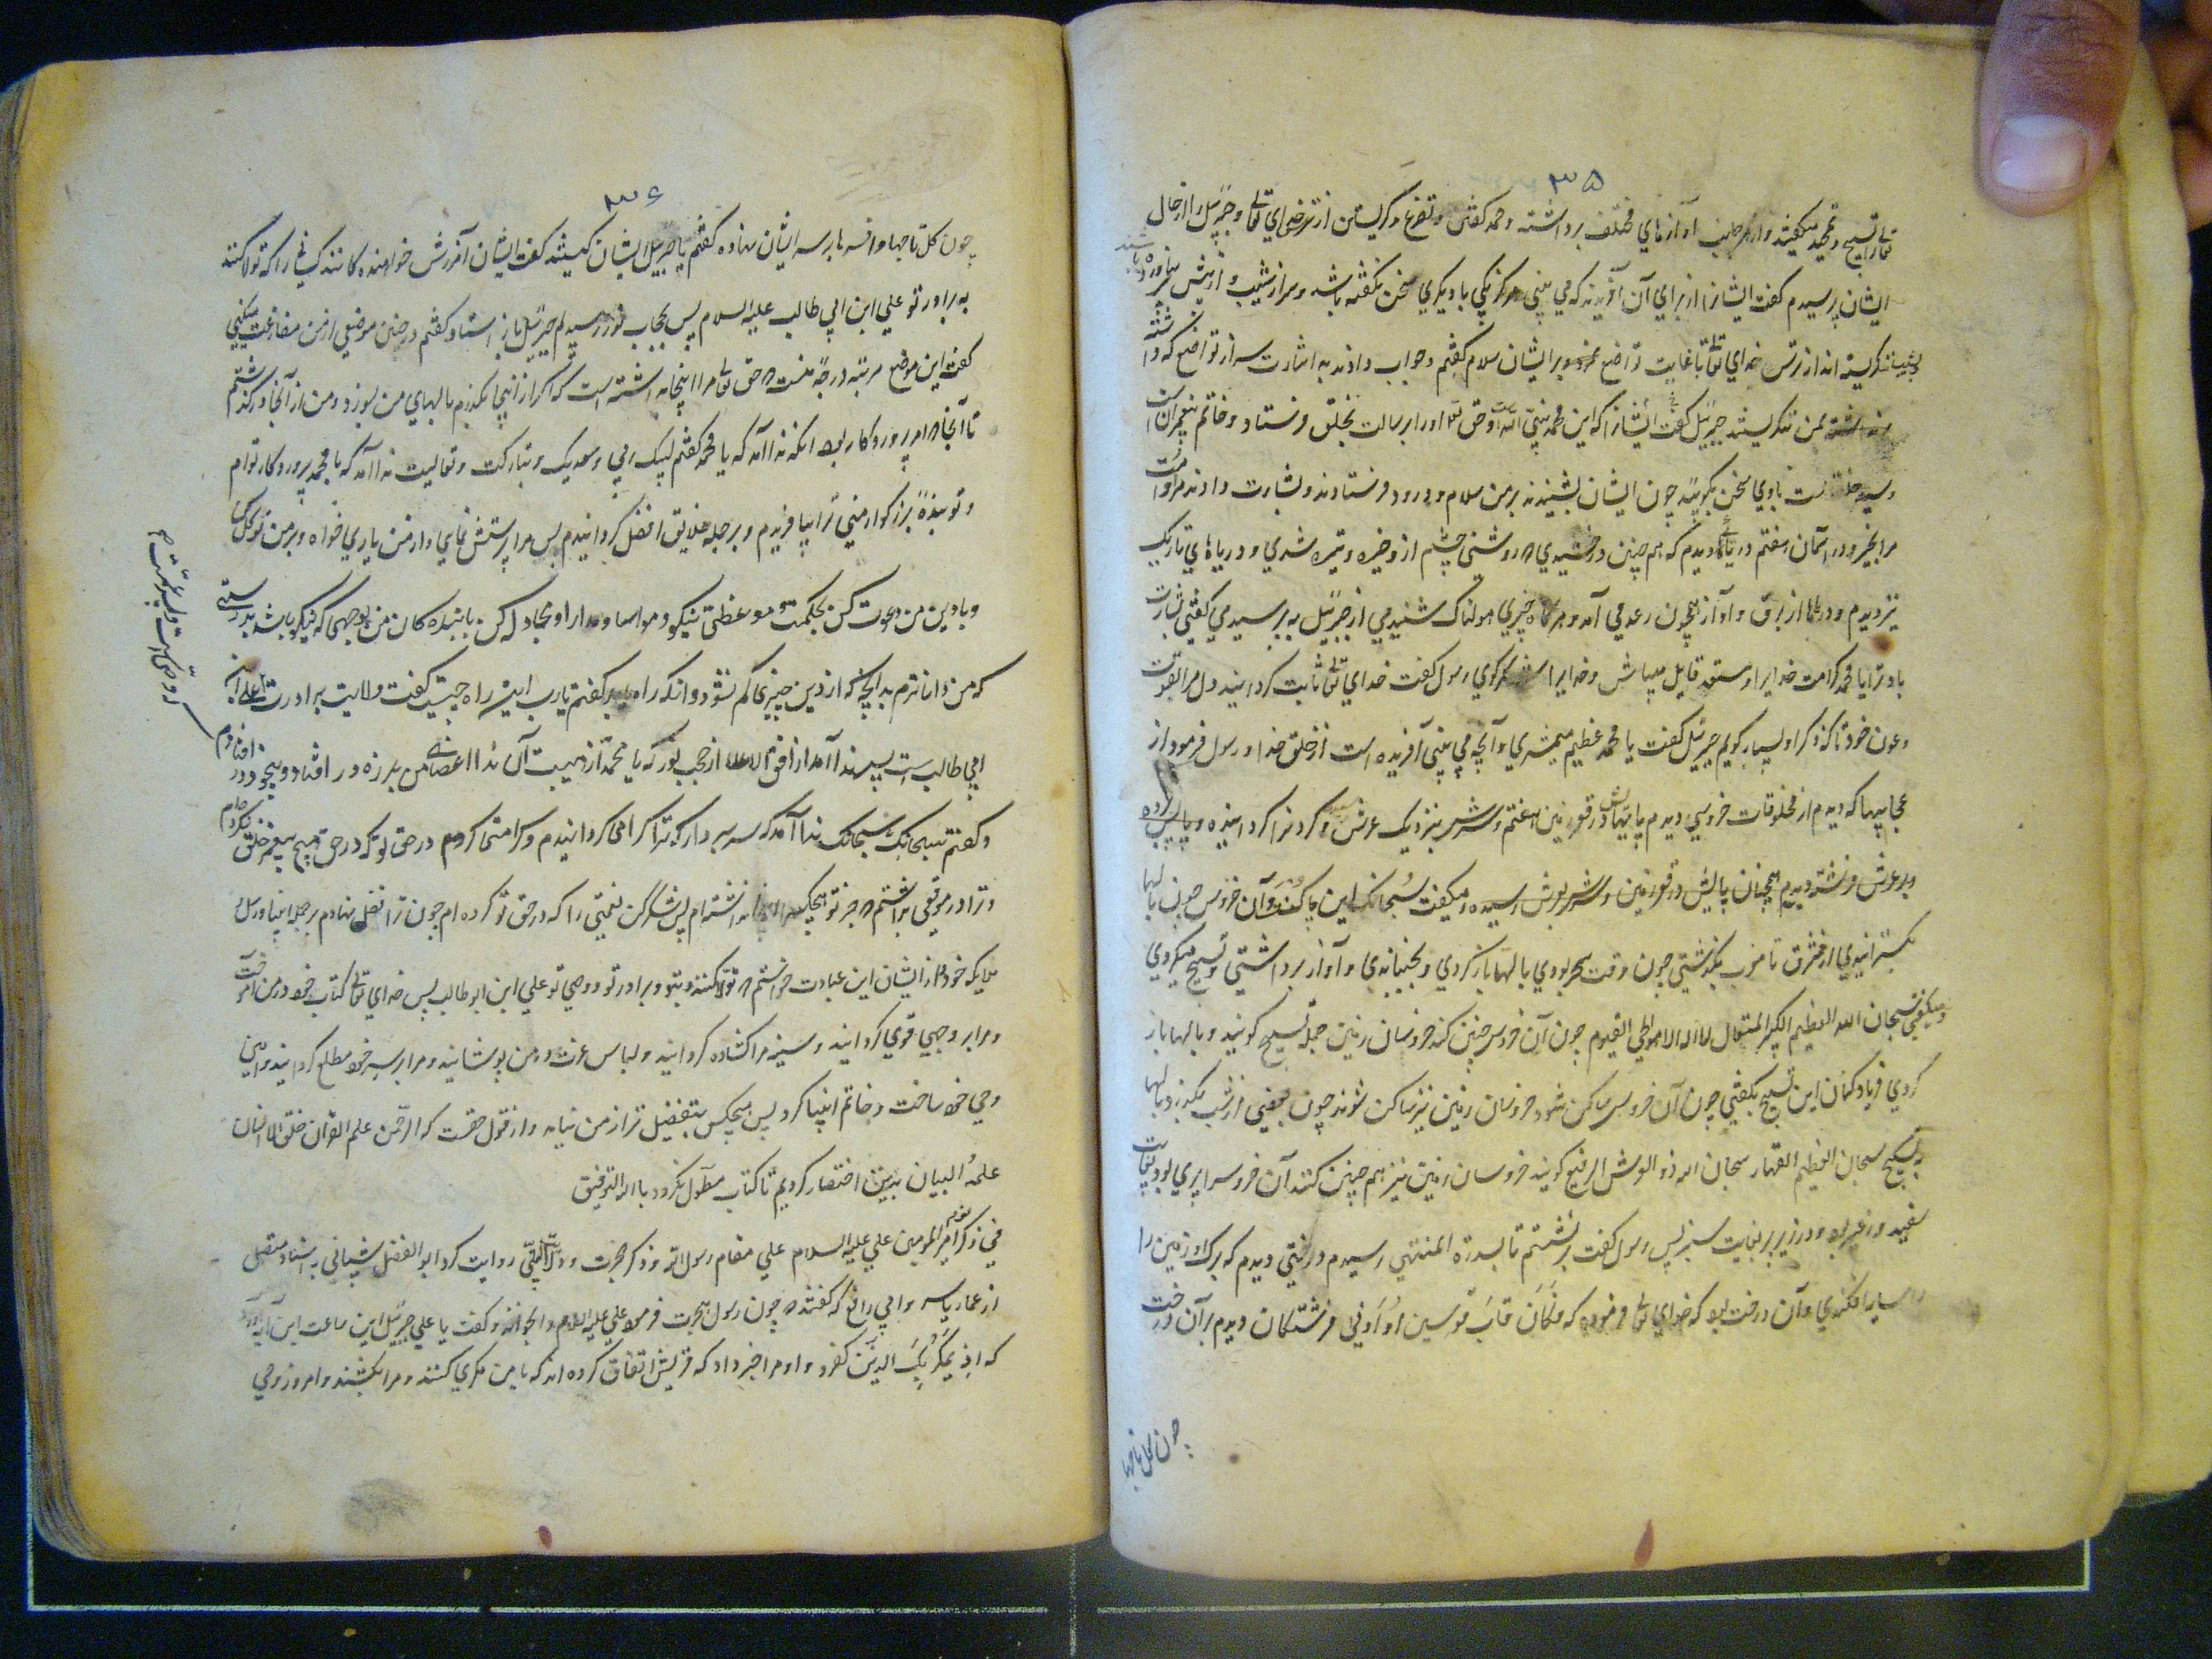 ۳۵
تعالی را تسبیح و تمجید میگفتند و از هر جانب آوازهای مختلف برداشته و حمد گفتن و تضرع و گریستن از ترس خدای تعالی و جبرئیل را از حال
ایشان پرسیدم گفت ایشانرا از برای آن آفریدند که می بینی هرگز یکی با دیگری سخن نگفته باشد و سر از شیب و از پیش برنیاورده باشند
بجنبش ننگریسته اند از ترس خدای تعالی تا غایت تواضع بر ایشان سلام گفتم و جواب دادند به اشارت سر از تواضع که داشتند
بمن ننگریستند جبرئیل گفت ایشانرا که این محمد نبی الله است و حق تعالی او را برسالت بخلق فرستاد و خاتم پیغمبران است
وسید خلق است باوی سخن بگویید چون ایشان بشنیدند بر من سلام و درود فرستادند و بشارت دادند مرا و امت
مرا بخیر و در آسمان هفتم دریاها دیدم که هم چنین درخشیدی که روشنی چشم از و خیره و تیره شدی و دریاهای تاریک
نیز دیدم و دریاها از برف و آواز همچون رعد می آمد و هرگاه چیزی هولناک شنیدمی از جبرئیل به پرسیدمی گفتی بشارت
باد ترا یا محمد کرامت خدایرا و مستعد قابل میباش و خدایرا شکر گوی رسول گفت خدای تعالی ثابت گردانید دل مرا بقوت
وعون خود تا که ذکر او بسیار گویم جبرئیل گفت یا محمد عظیم میشمری و آنچه می بینی آفریده است از خلق خدا و رسول فرمود از
عجایبها که دیدم از مخلوقات خروسی دیدم پایهاش در قعر زمین هفتم و سرش بنزدیک عرش و گردن گردانیده و بالش
وبر عرش فرشته دیدم همچنان پایش در قعر زمین و سرش بعرش رسیده و میگفت سبحانک این ما کنت و آن خروس چون بالها
بگسترانیدی از مشرق تا مغرب بگذشتی چون وقت سحر بودی بالها باز کردی و بجنبانیدی و آواز برداشتی و تسبیح میکردی
و میگفتی سبحان الله العظیم الکبیر المتعال لا اله الا هو الحی القیوم چون آن خروس چنین کند خروسان زمین جمله تسبیح گویند و بالها باز
کردی فریاد کنان این تسبیح بگفتی چون آن خروس ساکن شود خروسان زمین نیز ساکن شوند چون بعضی از شب بگذرد بالها
تسبیح سبحان العظیم القهار سبحان الله ذو العرش الرفیع گویند خروسان زمین نیز هم چنین کنند آن خروس را پری بود بغایت
سفید و زغب و در زیر پر بغایت سبز پس رسول گفت برگشتم تا بسدرة المنتهی رسیدم درختی دیدم که برگ او زمین را
سایه افکندی و آن درخت بود که خدای تعالی فرموده که فکان قاب قوسین او ادنی فرشتگان دیدم بر آن درخت
چون کل تاجها
۳۶
چون کل تاجها و افسرها بر سر ایشان نهاده گفتم یا جبرئیل ایشان کیستند گفت ایشان آمرزش خواهنده گانند کسانی را که تولا کنند
به برادر تو علی ابن ابی طالب علیه السلام پس بحجاب نور رسیدم جبرئیل باز استاد گفتم در چنین موضعی از من مفارقت میکنی
گفت این موضع مرتبه و درجه منست که حق تعالی مرا اینجا بداشته است که اگر از اینجا بگذرم بالهای من بسوزد و من از آنجا درگذشتم
تا آنجا که امر پروردگار بود آنگه ندا آمد که یا محمد گفتم لبیک ربی و سعدیک و تبارکت و تعالیت ندا آمد که یا محمد پروردگار توام
و تو بنده بزرگوار منی ترا بیافریدم و بر جمله خلایق افضل گردانیدم پس مرا پرستش نمای و از من یاری خواه و بر من توکل کن
و با دین من دعوت کن بحکمت و موعظتی نیکو و مواسا و مدارا و مجادله کن با بنده گان من بوجهی که نیکو باشد بدرستی
که من داناترم بدانچه که از دین چیزی گم نشود و آنکه راه گفتم یارب این راه چیست گفت ولایت برادرت علی ابن
ابی طالب است پس ندا آمد از افق الاعلا از حجب نور که یا محمد از هیبت آن ندا اعضای من بلرزه در افتاد و بسجود در افتادم
و گفتم سبحانک سبحانک ندا آمد که سر بردار که ترا گرامی گردانیدم و کرامتها کردم در حق تو که در حق هیچ پیغمبر خلق نکردم
وترا در موقفی بداشتم که جز تو هیچکس را نداشته ام پس شکر کن نعمتی را که در حق تو کرده ام چون ترا فضل نهادم بر جمله انبیا و رسل
ملایکه خود از ایشان این عبادت خواستم که تولا کنند بتو و برادر تو و وصی تو علی ابن ابو طالب پس خدای تعالی کتاب خود در من آموخت
ومرا بر وحی قوی گردانید و سینه مرا گشاده گردانید و لباس عزت در من پوشانید و مرا بر سر خود مطلع گردانید و امین
وحی خود ساخت و خاتم انبیا کرد پس هیچکس بتفضیل تر از من نیامد و از قول حقست که الرحمن علم القرآن خلق الانسان
علمه البیان بدین اختصار کردیم تا کتاب مطول نگردد باالله التوفیق
فی ذکر مقام امیر المومنین علی علیه السلام علی مقام رسول الله و ذکر هجرت روایت کرد ابو الفضل شیبانی به اسناد متصل
از عمار یاسر و ابی رافع که گفتند که چون رسول هجرت فرمود علی علیه السلام را بخواند و گفت یا علی جبرئیل این ساعت این آیه آورد
که اذ یمکر بک الذین کفرو و او مرا خبر داد که قریش اتفاق کرده اند که با من مکری کنند و مرا بکشند و امروز وحی
که وصی است و امیر عزت